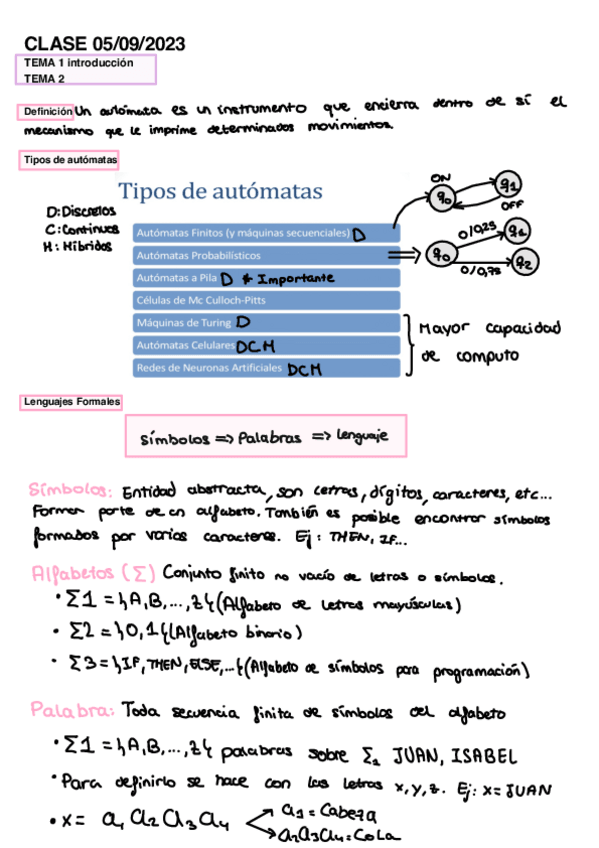 CLASE 05/09/2023
TEMA 1 introducción
TEMA 2
Definición Un autómata es un instrumento que encierra dentro de sí el
mecanismo que le imprime determinados movimientos.
Tipos de autómatas
Tipos de autómatas
D: Discretos
C: Continuos
H: Híbridos
Autómatas Finitos (y máquinas secuenciales) D
Autómatas Probabilísticos
Autómatas a Pila D * Importante
Células de Mc Culloch-Pitts
Máquinas de Turing D
Autómatas Celulares DCH
Redes de Neuronas Artificiales DCH
ON
q0
q1
OFF
q0
0/0,25
q1
0/0,75
q2
Mayor capacidad
de computo
Lenguajes Formales
símbolos => Palabras => lenguaje
Símbolos: Entidad abstracta, son letras, dígitos, caracteres, etc...
Forman parte de un alfabeto. También es posible encontrar símbolos
formados por varios caracteres. Ej: THEN, IF...
Alfabetos (Σ) Conjunto finito no vacío de letras o símbolos.
• Σ1 = {A,B,...,Z} (Alfabeto de letras mayúsculas)
• Σ2 = {0,1} (Alfabeto binario)
• Σ3 = {IF, THEN, ELSE,...} (Alfabeto de símbolos para programación)
Palabra: Toda secuencia finita de símbolos del alfabeto
• Σ1 = {A,B,...,Z} palabras sobre Σ1 JUAN, ISABEL
• Para definirlo se hace con las letras x, y, z. Ej: x = JUAN
• x = a1 a2 a3 a4
a1 = Cabeza
a2a3a4 = Cola